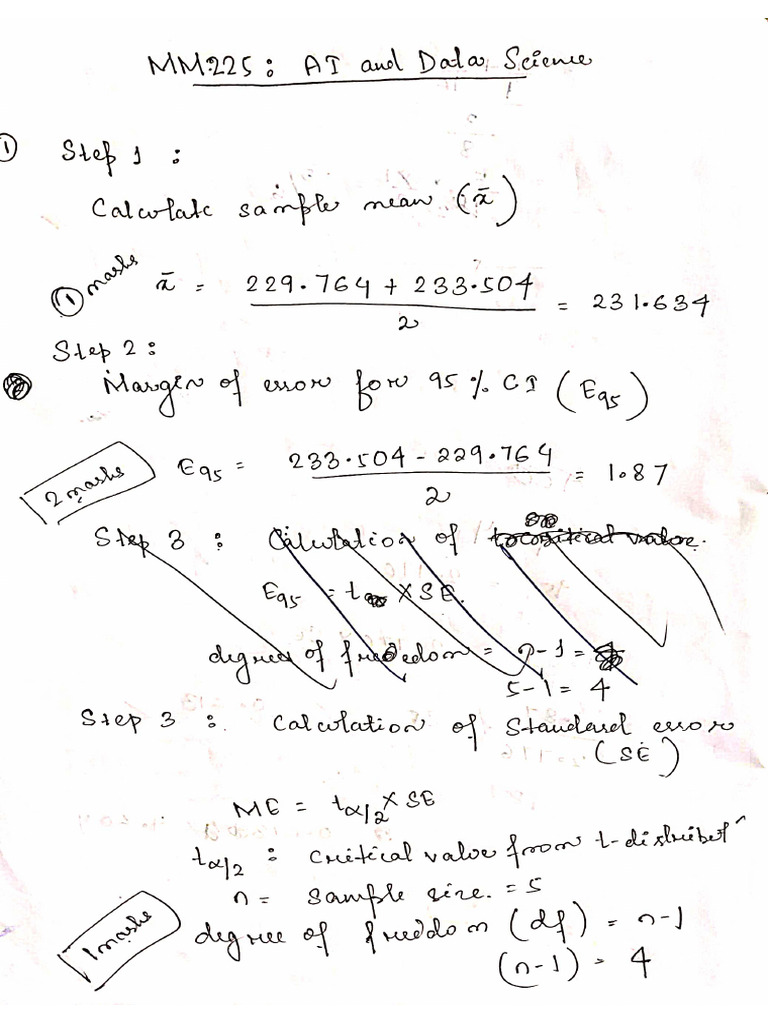 MM225: AI and Data Science
① Step 1 :
Calculate sample mean (x̄)
① marks x̄ = 229.764 + 233.504 / 2 = 231.634
Step 2 :
Margin of error for 95 % CI (E95)
2 marks E95 = 233.504 - 229.764 / 2 = 1.87
Step 3 : Calculation of
E95 = t × SE.
degree of freedom = n-1 =
5-1 = 4
Step 3 : Calculation of Standard error
(SE)
ME = tα/2 × SE
tα/2 : Critical value from t-distribut^n
n = sample size. = 5
1 marks degree of freedom (df) = n-1
(n-1) = 4